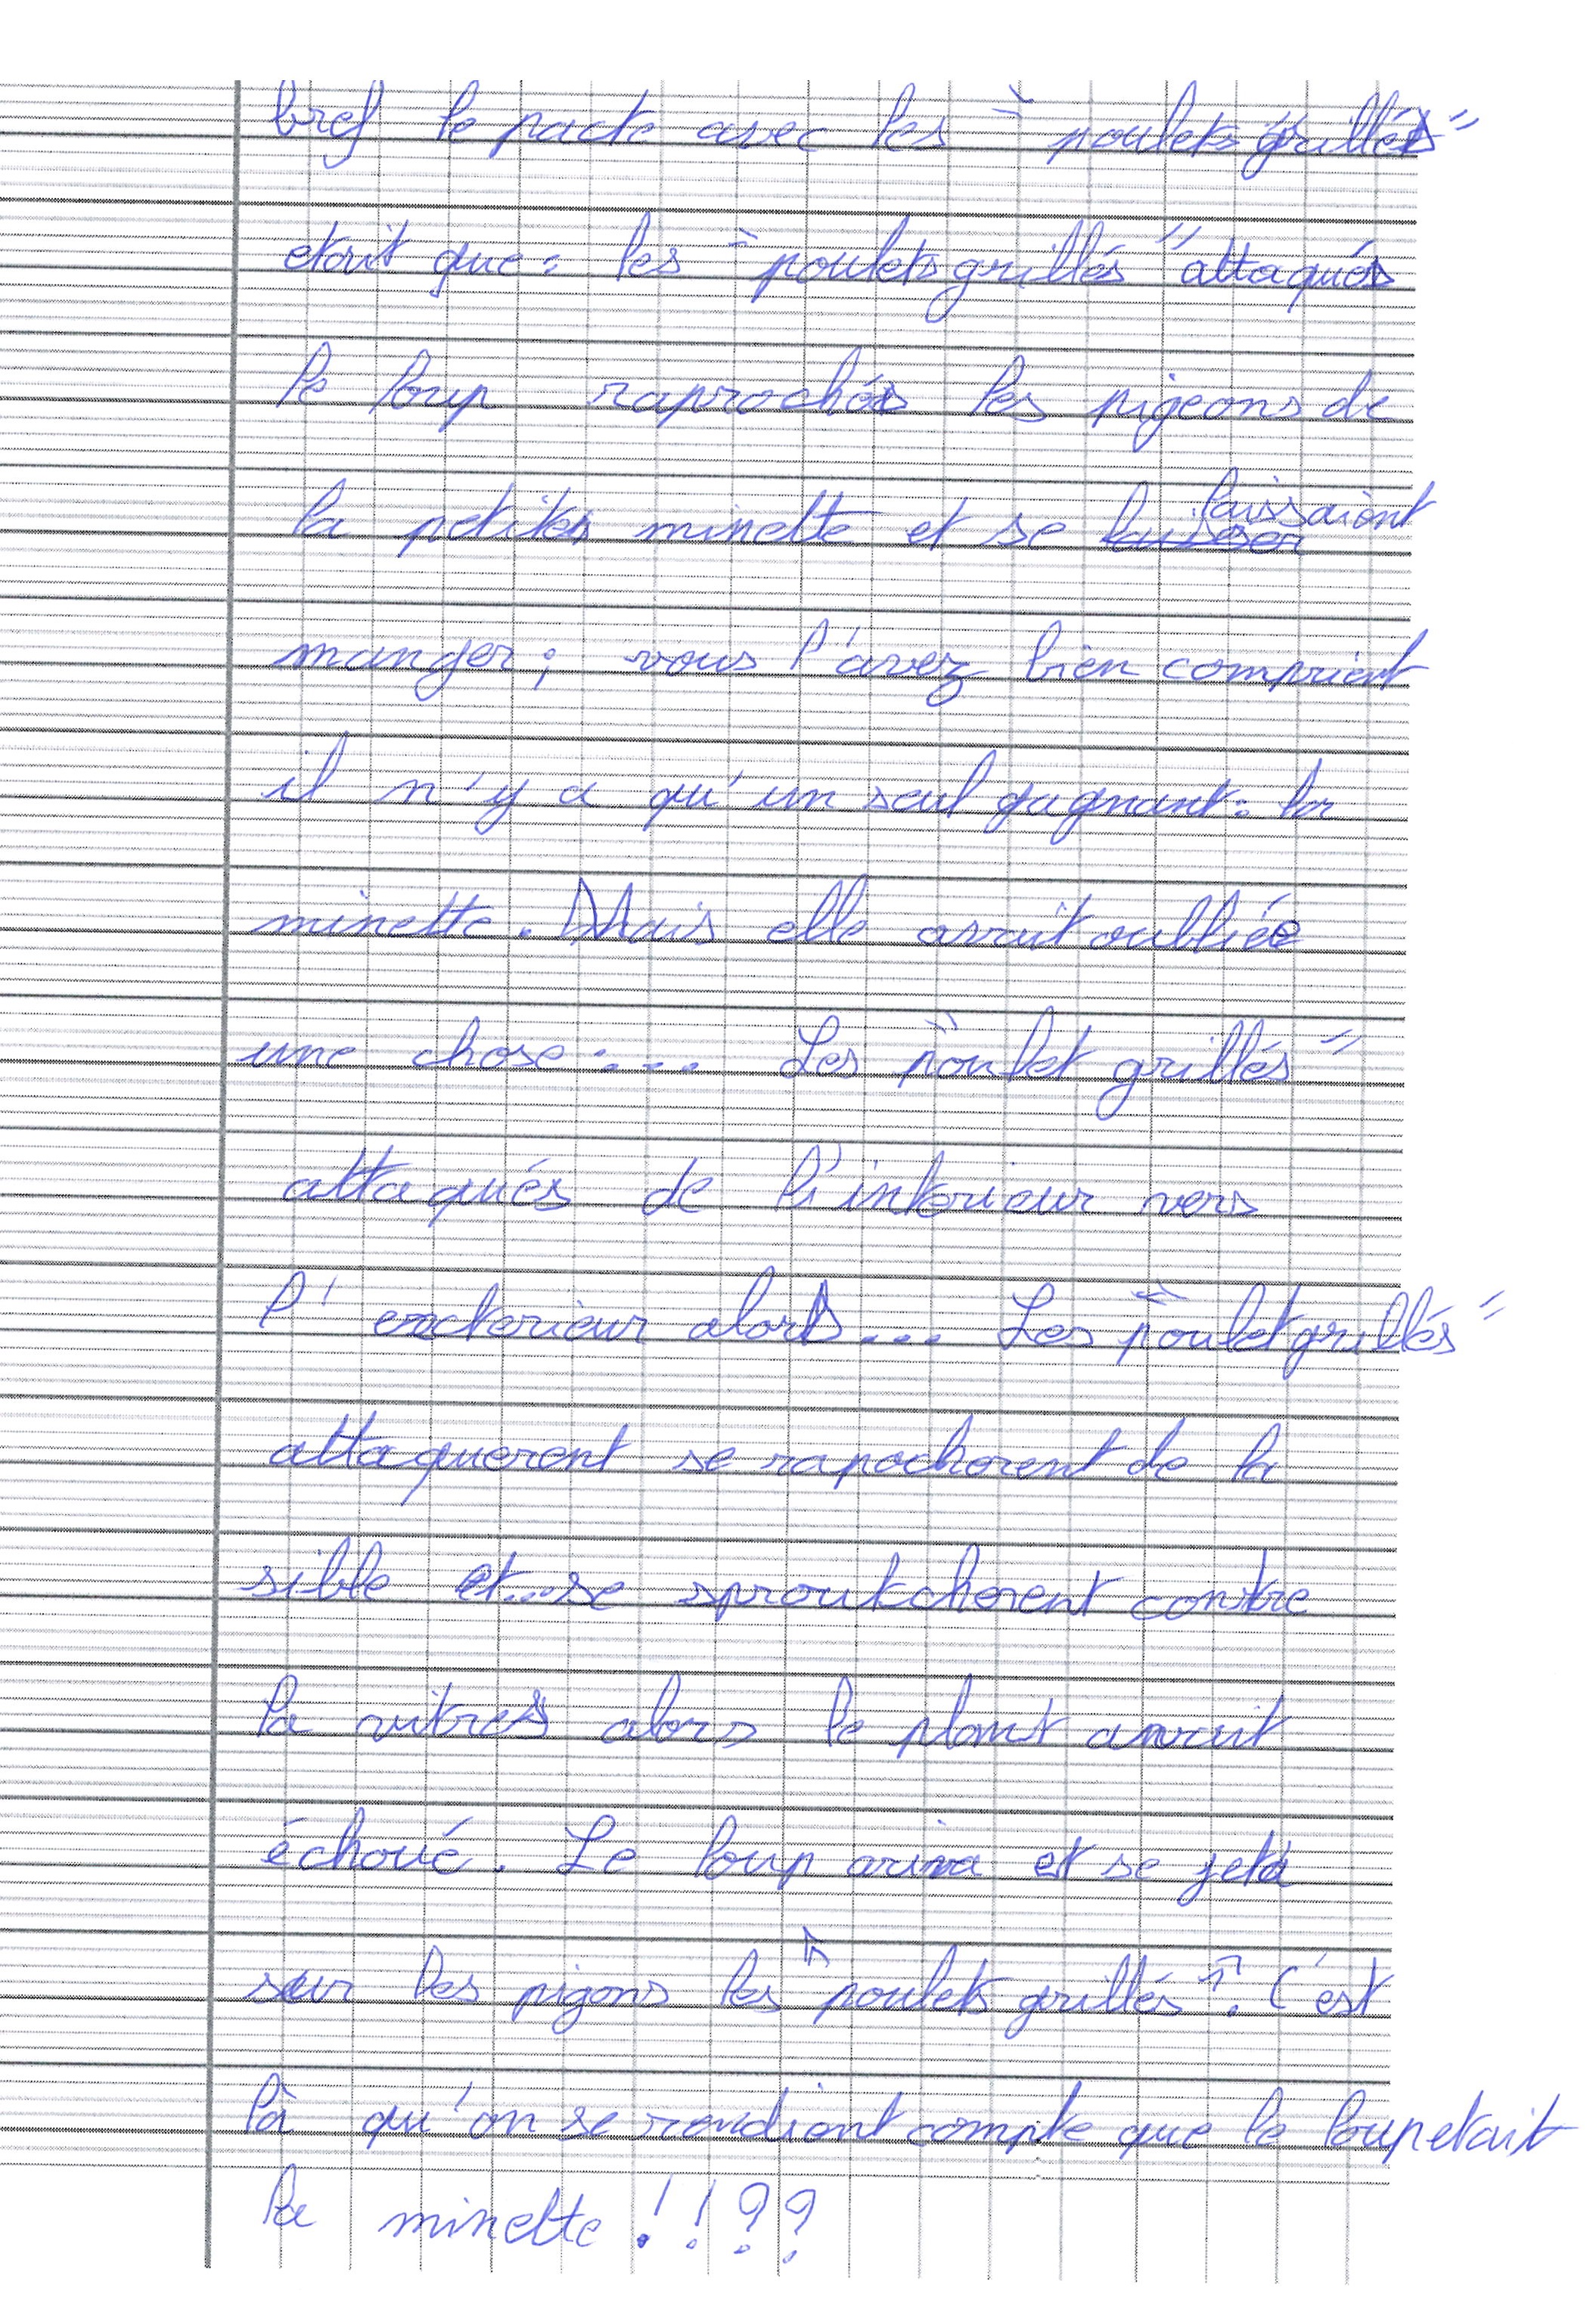 bref le pacte avec les "poulets grillés"
etait que : les "poulets grillés" attaqués
le loup raprochés les pigeons de
la petites minette et se laissaient
manger ; vous l'avez bien comprient
il n'y a qu'un seul gagnant : la
minette. Mais elle avait oubliée
une chose : ... Les "poulet grillés"
attaqués de l'interieur vers
l'excterieur alors ... Les "poulet grillés"
attaquerent se rapocherent de la
sible et... se sproutcherent contre
la vitres alors le plant avait
échoué. Le loup ariva et se jeta
sur les pigons les "poulets grillés". C'est
là qu'on se rendient compte que le loup etait
la minette !!??